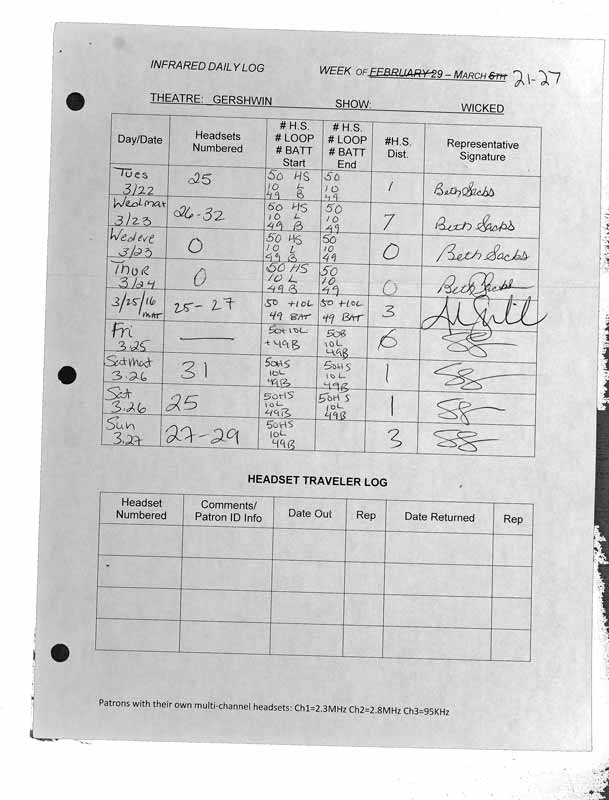 INFRARED DAILY LOG WEEK OF FEBRUARY 29 – MARCH 6TH 21-27
THEATRE: GERSHWIN SHOW: WICKED
Day/Date Headsets Numbered # H.S. # LOOP # BATT Start # H.S. # LOOP # BATT End #H.S. Dist. Representative Signature
Tues 3/22 25 50 HS 10 L 49 B 50 10 49 1 Beth Sachs
Wedmat 3/23 26-32 50 HS 10 L 49 B 50 10 49 7 Beth Sachs
Wedeve 3/23 0 50 HS 10 L 49 B 50 10 49 0 Beth Sachs
Thur 3/24 0 50 HS 10 L 49 B 50 10 49 0 Beth Sachs
3/25/16 MAT 25-27 50 +10L 49 BAT 50 +10L 49 BAT 3
Fri 3.25 — 50+10L +49B 50B 10L 49B
Satmat 3.26 31 50HS 10L 49B 50HS 10L 49B 1
Sat 3.26 25 50HS 10L 49B 50HS 10L 49B 1
Sun 3.27 27-29 50HS 10L 49B 3
HEADSET TRAVELER LOG
Headset Numbered Comments/ Patron ID Info Date Out Rep Date Returned Rep
Patrons with their own multi-channel headsets: Ch1=2.3MHz Ch2=2.8MHz Ch3=95KHz